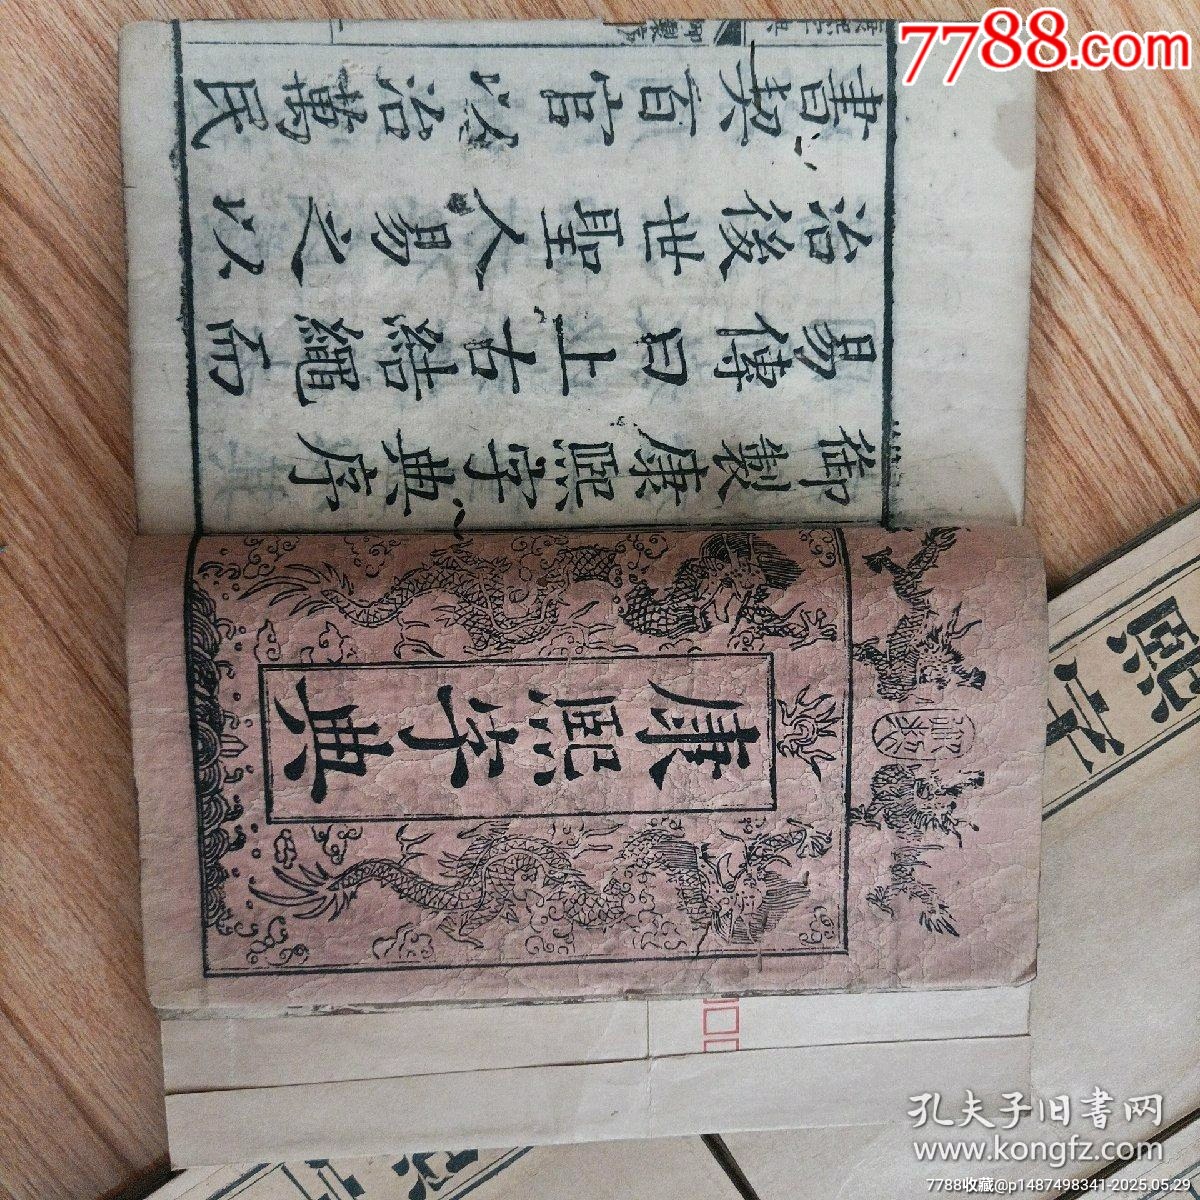 御製
康熙字典
御製康熙字典序
易傳曰上古結繩而
治後世聖人易之以
書契百官以治萬民
康熙字典
御製序
一
熙字
7788.com
孔夫子旧書网
www.kongfz.com
7788收藏@p1487498341-2025.05.29